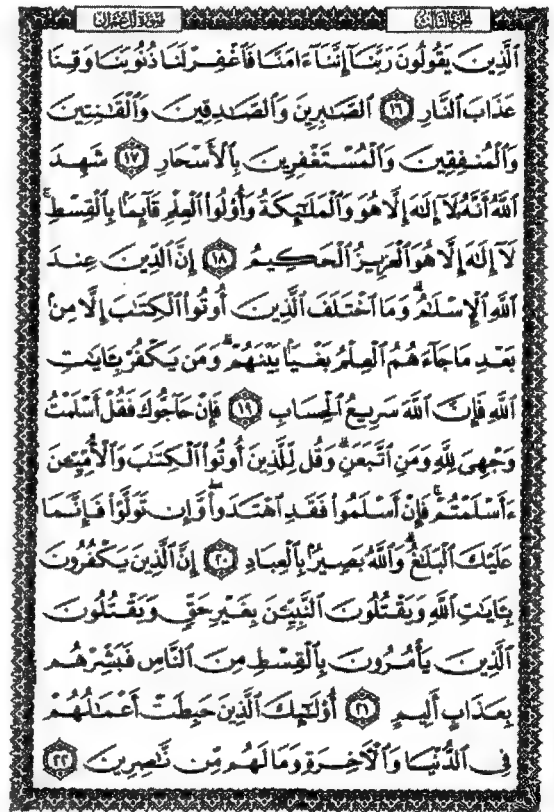 سُورَةُ آلِ عِمْرَانَ الجُزْءُ الثَّالِثُ
ٱلَّذِينَ يَقُولُونَ رَبَّنَآ إِنَّنَآ ءَامَنَّا فَٱغْفِرْ لَنَا ذُنُوبَنَا وَقِنَا
عَذَابَ ٱلنَّارِ ١٦ ٱلصَّٰبِرِينَ وَٱلصَّٰدِقِينَ وَٱلْقَٰنِتِينَ
وَٱلْمُنفِقِينَ وَٱلْمُسْتَغْفِرِينَ بِٱلْأَسْحَارِ ١٧ شَهِدَ
ٱللَّهُ أَنَّهُۥ لَآ إِلَٰهَ إِلَّا هُوَ وَٱلْمَلَٰٓئِكَةُ وَأُو۟لُوا۟ ٱلْعِلْمِ قَآئِمًۢا بِٱلْقِسْطِ ۚ
لَآ إِلَٰهَ إِلَّا هُوَ ٱلْعَزِيزُ ٱلْحَكِيمُ ١٨ إِنَّ ٱلدِّينَ عِندَ
ٱللَّهِ ٱلْإِسْلَٰمُ ۗ وَمَا ٱخْتَلَفَ ٱلَّذِينَ أُوتُوا۟ ٱلْكِتَٰبَ إِلَّا مِنۢ
بَعْدِ مَا جَآءَهُمُ ٱلْعِلْمُ بَغْيًۢا بَيْنَهُمْ ۗ وَمَن يَكْفُرْ بِـَٔايَٰتِ
ٱللَّهِ فَإِنَّ ٱللَّهَ سَرِيعُ ٱلْحِسَابِ ١٩ فَإِنْ حَآجُّوكَ فَقُلْ أَسْلَمْتُ
وَجْهِىَ لِلَّهِ وَمَنِ ٱتَّبَعَنِ ۗ وَقُل لِّلَّذِينَ أُوتُوا۟ ٱلْكِتَٰبَ وَٱلْأُمِّيِّـۧنَ
ءَأَسْلَمْتُمْ ۚ فَإِنْ أَسْلَمُوا۟ فَقَدِ ٱهْتَدَوا۟ ۖ وَّإِن تَوَلَّوْا۟ فَإِنَّمَا
عَلَيْكَ ٱلْبَلَٰغُ ۗ وَٱللَّهُ بَصِيرٌۢ بِٱلْعِبَادِ ٢٠ إِنَّ ٱلَّذِينَ يَكْفُرُونَ
بِـَٔايَٰتِ ٱللَّهِ وَيَقْتُلُونَ ٱلنَّبِيِّـۧنَ بِغَيْرِ حَقٍّ وَيَقْتُلُونَ
ٱلَّذِينَ يَأْمُرُونَ بِٱلْقِسْطِ مِنَ ٱلنَّاسِ فَبَشِّرْهُم
بِعَذَابٍ أَلِيمٍ ٢١ أُو۟لَٰٓئِكَ ٱلَّذِينَ حَبِطَتْ أَعْمَٰلُهُمْ
فِى ٱلدُّنْيَا وَٱلْءَاخِرَةِ وَمَا لَهُم مِّن نَّٰصِرِينَ ٢٢